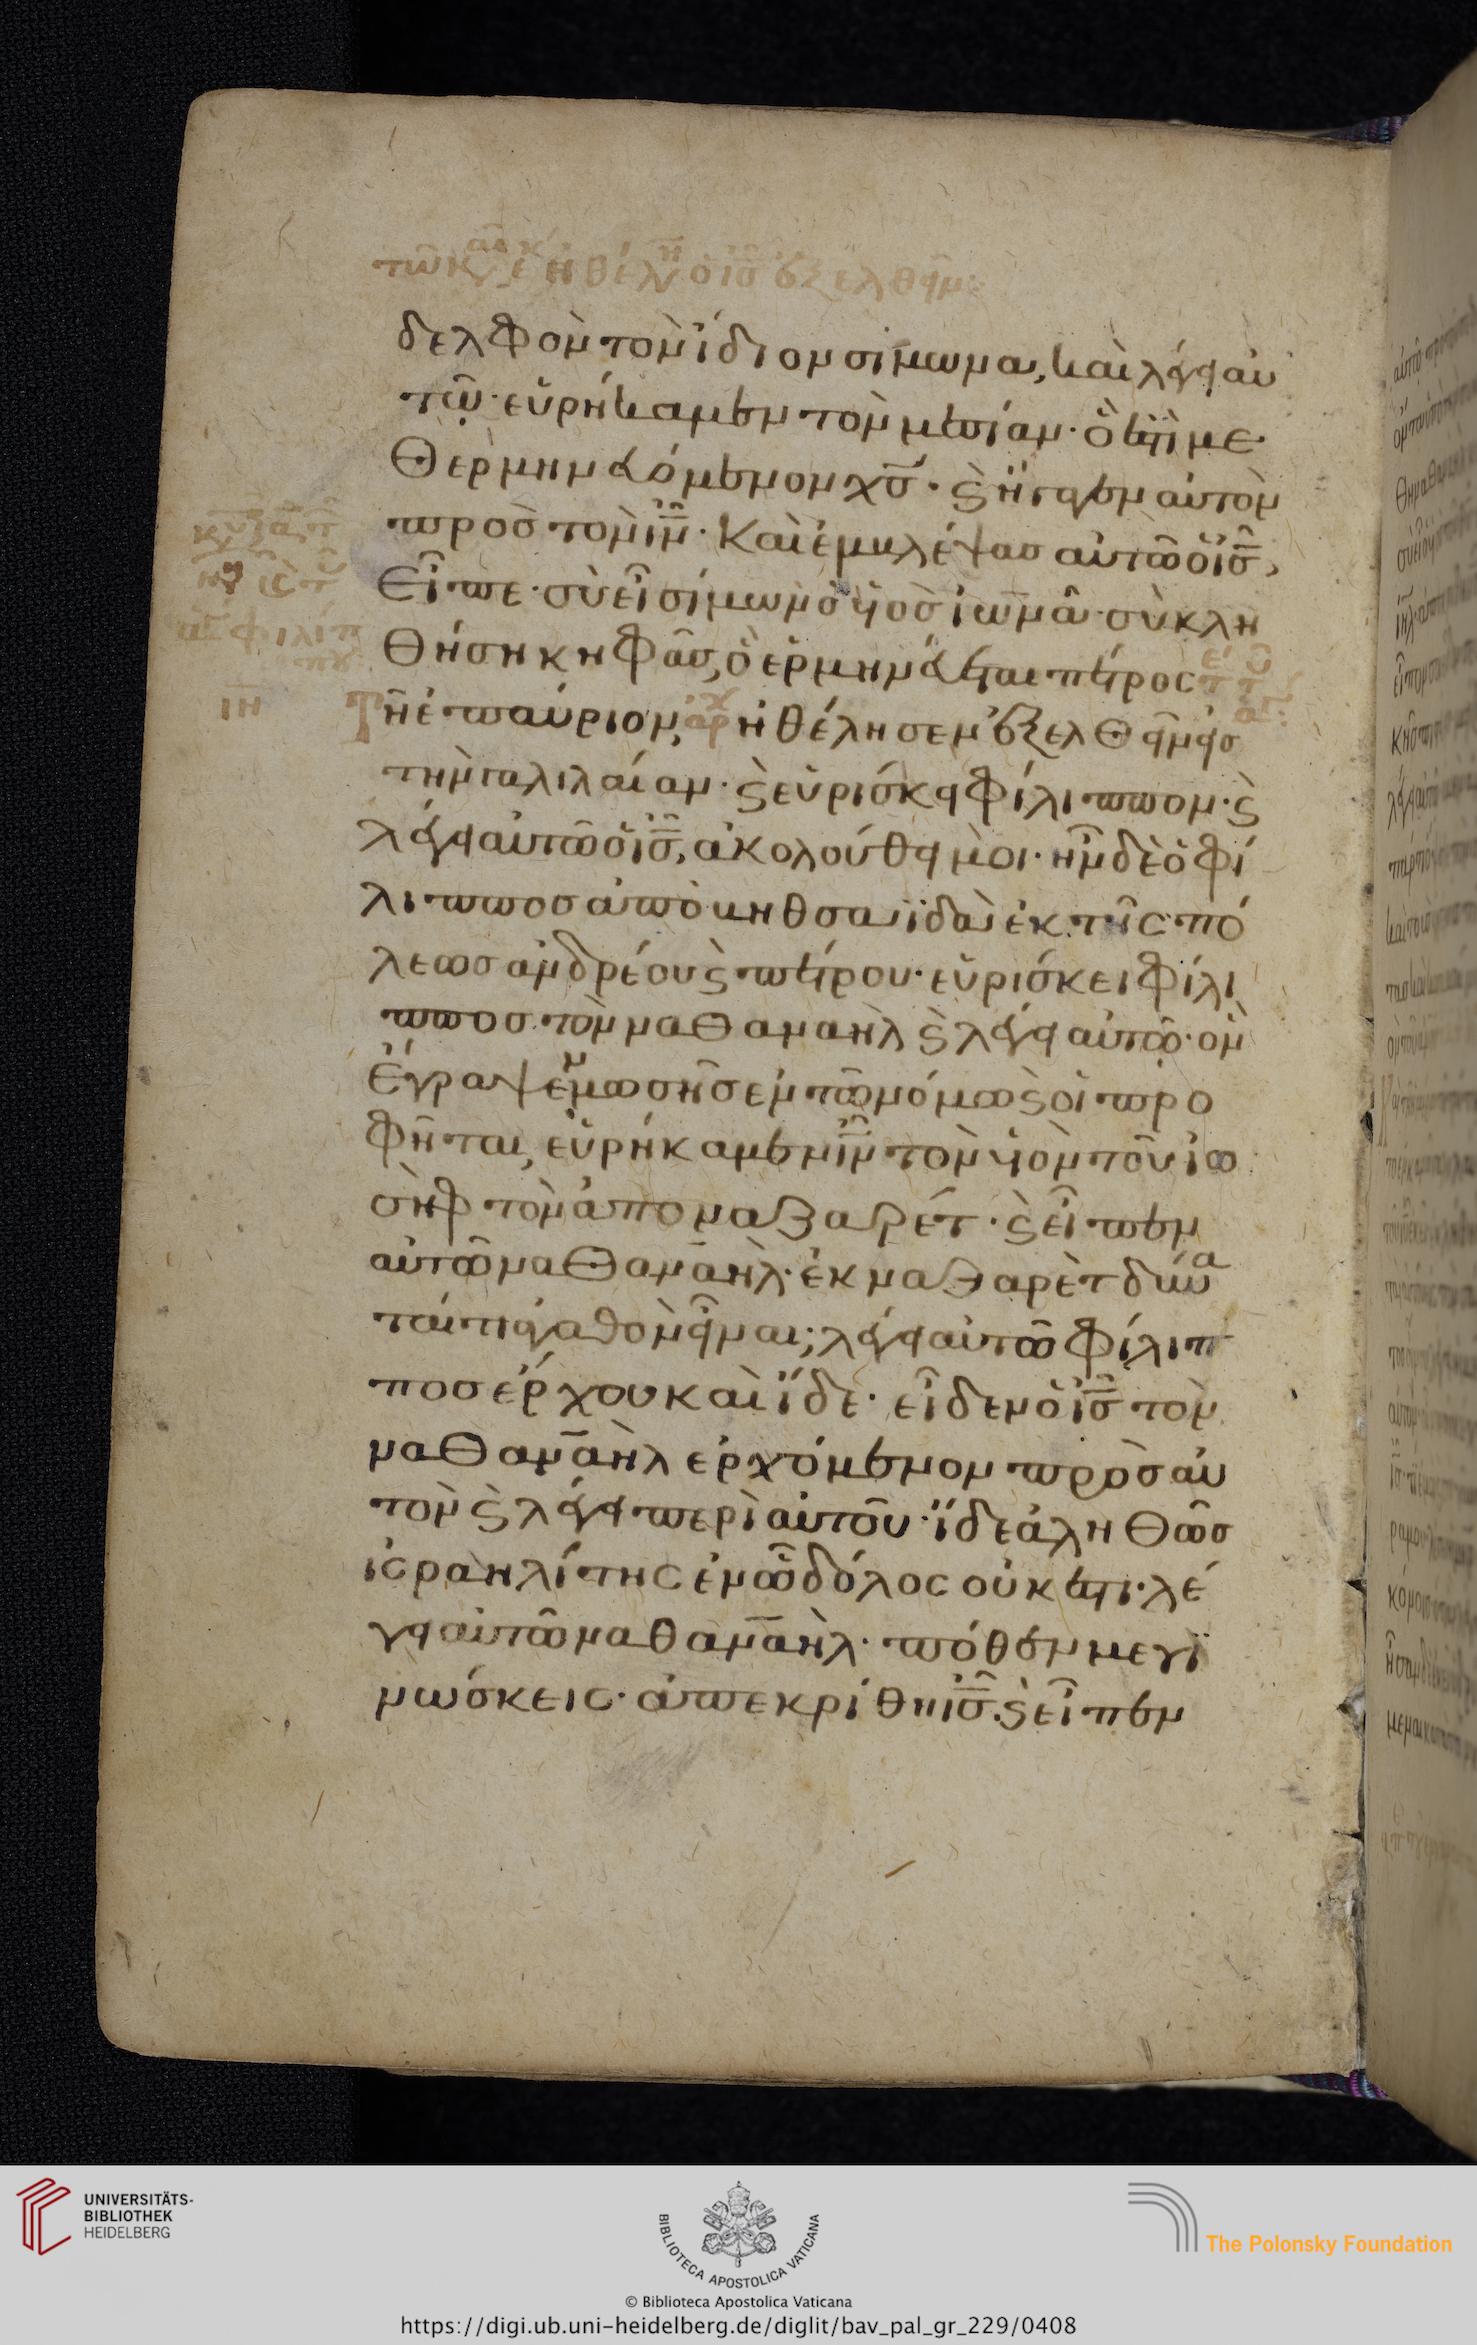 δελφὸν τὸν ἴδιον σίμωνα, καὶ λέγει αὐ
τῶ· εὑρήκαμεν τὸν μεσίαν· ὅ ἐστι με
θερμηνευόμενον χσ̅· ϛ ἤγαγεν αὐτὸν
προσ τὸν ιν̅· Καὶ ἐμβλέψασ αὐτῶ ὁ ισ̅,
Εἶπε· σὺ εἶ σίμων ὁ υἱὸσ ἰωνᾶ· σὺ κλη
θήση κηφᾶσ, ὃ ἑρμηνεύεται πέτρος
Τῆ ἐπαύριον, ἠθέλησεν ἐξελθεῖν εἰσ
τὴν γαλιλαίαν· ϛ εὑρίσκει φίλιππον· ϛ
λέγει αὐτῶ ὁ ισ̅, ἀκολούθει μοι· ἦν δὲ ὁ φί
λιπποσ ἀπὸ βηθσαϊδὰ ἐκ τῆς πό
λεωσ ἀνδρέου ϛ πέτρου· εὑρίσκει φίλι
πποσ τὸν ναθαναὴλ ϛ λέγει αὐτῶ· ὃν
Ἔγραψεν μωσῆσ ἐν τῶ νόμω ϛ οἱ προ
φῆται, εὑρήκαμεν ιν̅ τὸν υἱὸν τοῦ ἰω
σὴφ τὸν ἀπο ναζαρέτ· ϛ εἶπεν
αὐτῶ ναθαναὴλ· ἐκ ναζαρὲτ δύνα
ταί τι ἀγαθὸν εἶναι; λέγει αὐτῶ φίλιπ
ποσ ἔρχου καὶ ἴδε· εἶδεν ὁ ισ̅ τὸν
ναθαναὴλ ερχόμενον πρὸσ αὐ
τὸν ϛ λέγει περὶ αὐτοῦ· ἴδε ἀληθῶσ
ισραηλίτης ἐν ῶ δόλος οὐκ ἔστι· λέ
γει αὐτῶ ναθαναὴλ· πόθεν με γϊ
νώσκεις· ἀπεκρίθη ισ̅ ϛ εἶπεν
UNIVERSITÄTS-
BIBLIOTHEK
HEIDELBERG
BIBLIOTECA APOSTOLICA VATICANA
The Polonsky Foundation
© Biblioteca Apostolica Vaticana
https://digi.ub.uni-heidelberg.de/diglit/bav_pal_gr_229/0408